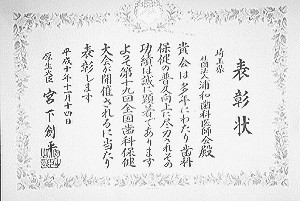 表彰状
埼玉県
社団法人浦和歯科医師会殿
貴会は多年にわたり歯科
保健の普及向上に尽力されその
功績は誠に顕著であります
よって第十九回全国歯科保健
大会が開催されるに当たり
表彰します
平成十年十一月十四日
厚生大臣 宮下創平